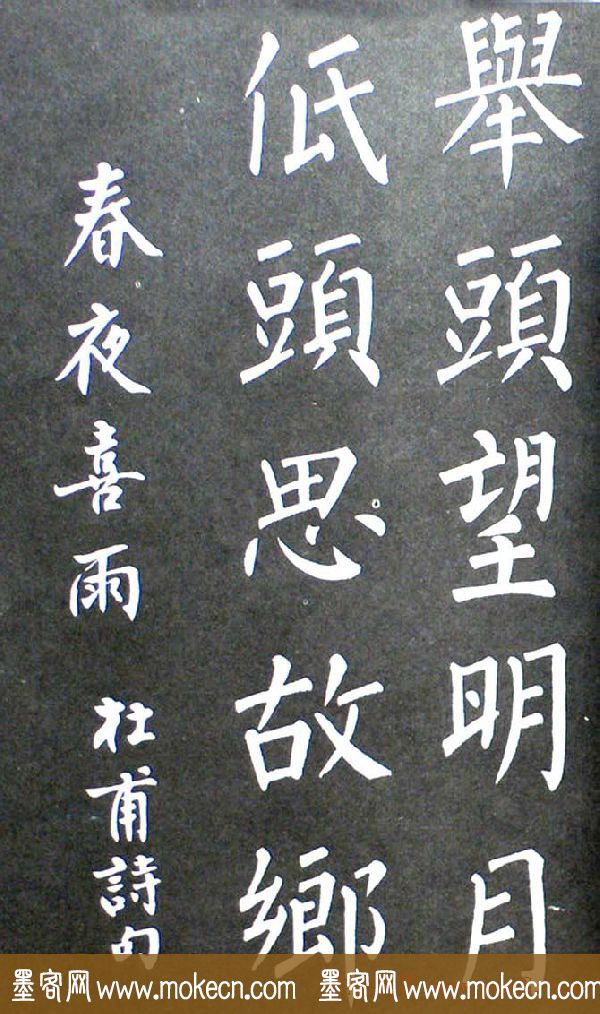 舉頭望明月
低頭思故鄉
春夜喜雨 杜甫詩句
墨客网 www.mokecn.com 墨客网 www.mokecn.com